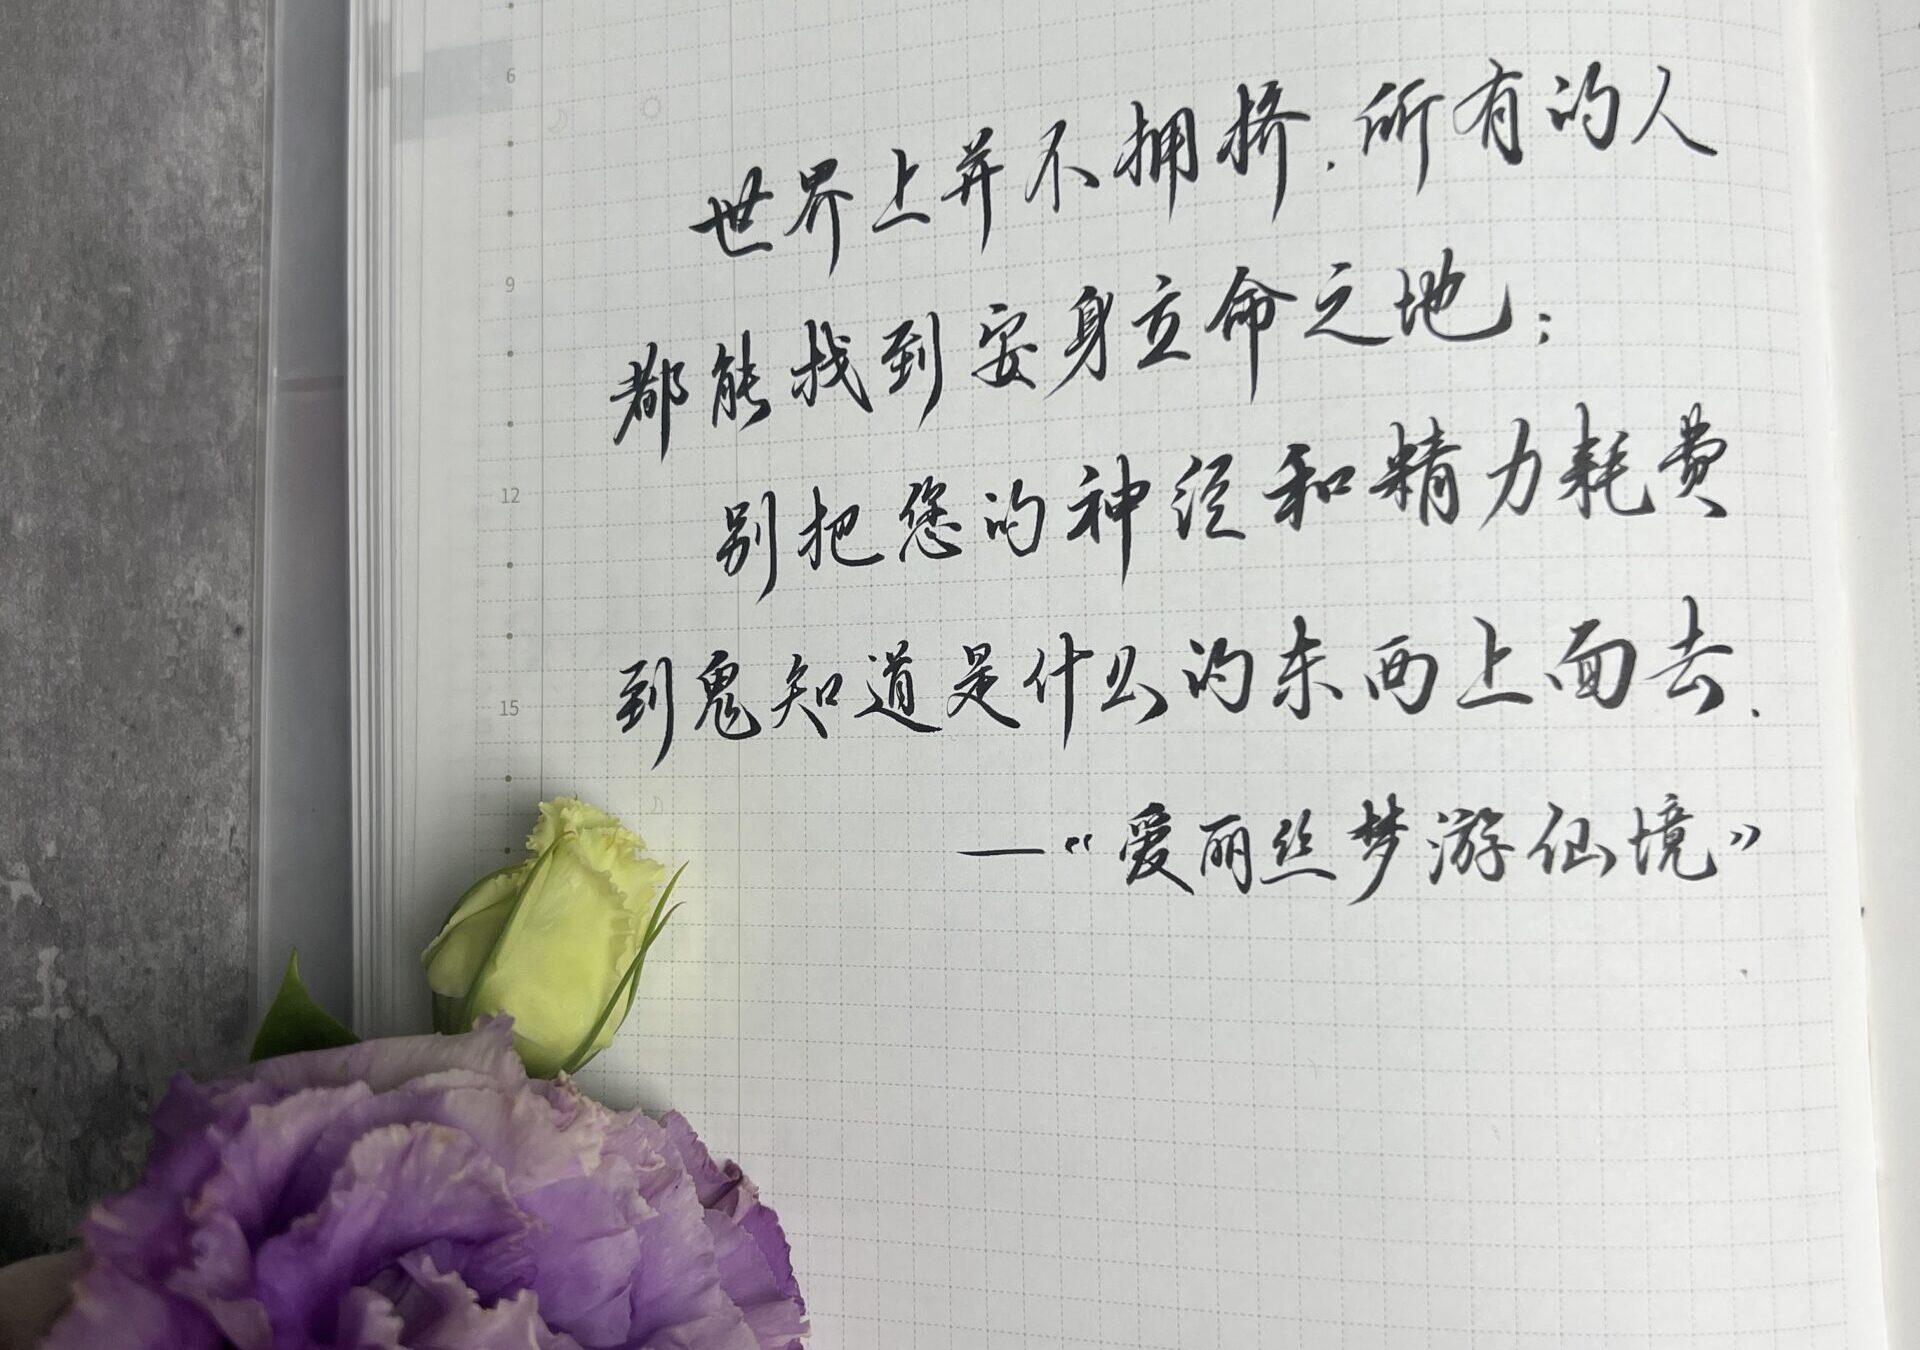 6
世界上并不拥挤.所有的人
9
都能找到安身立命之地;
12
别把您的神经和精力耗费
15
到鬼知道是什么的东西上面去.
—“爱丽丝梦游仙境”